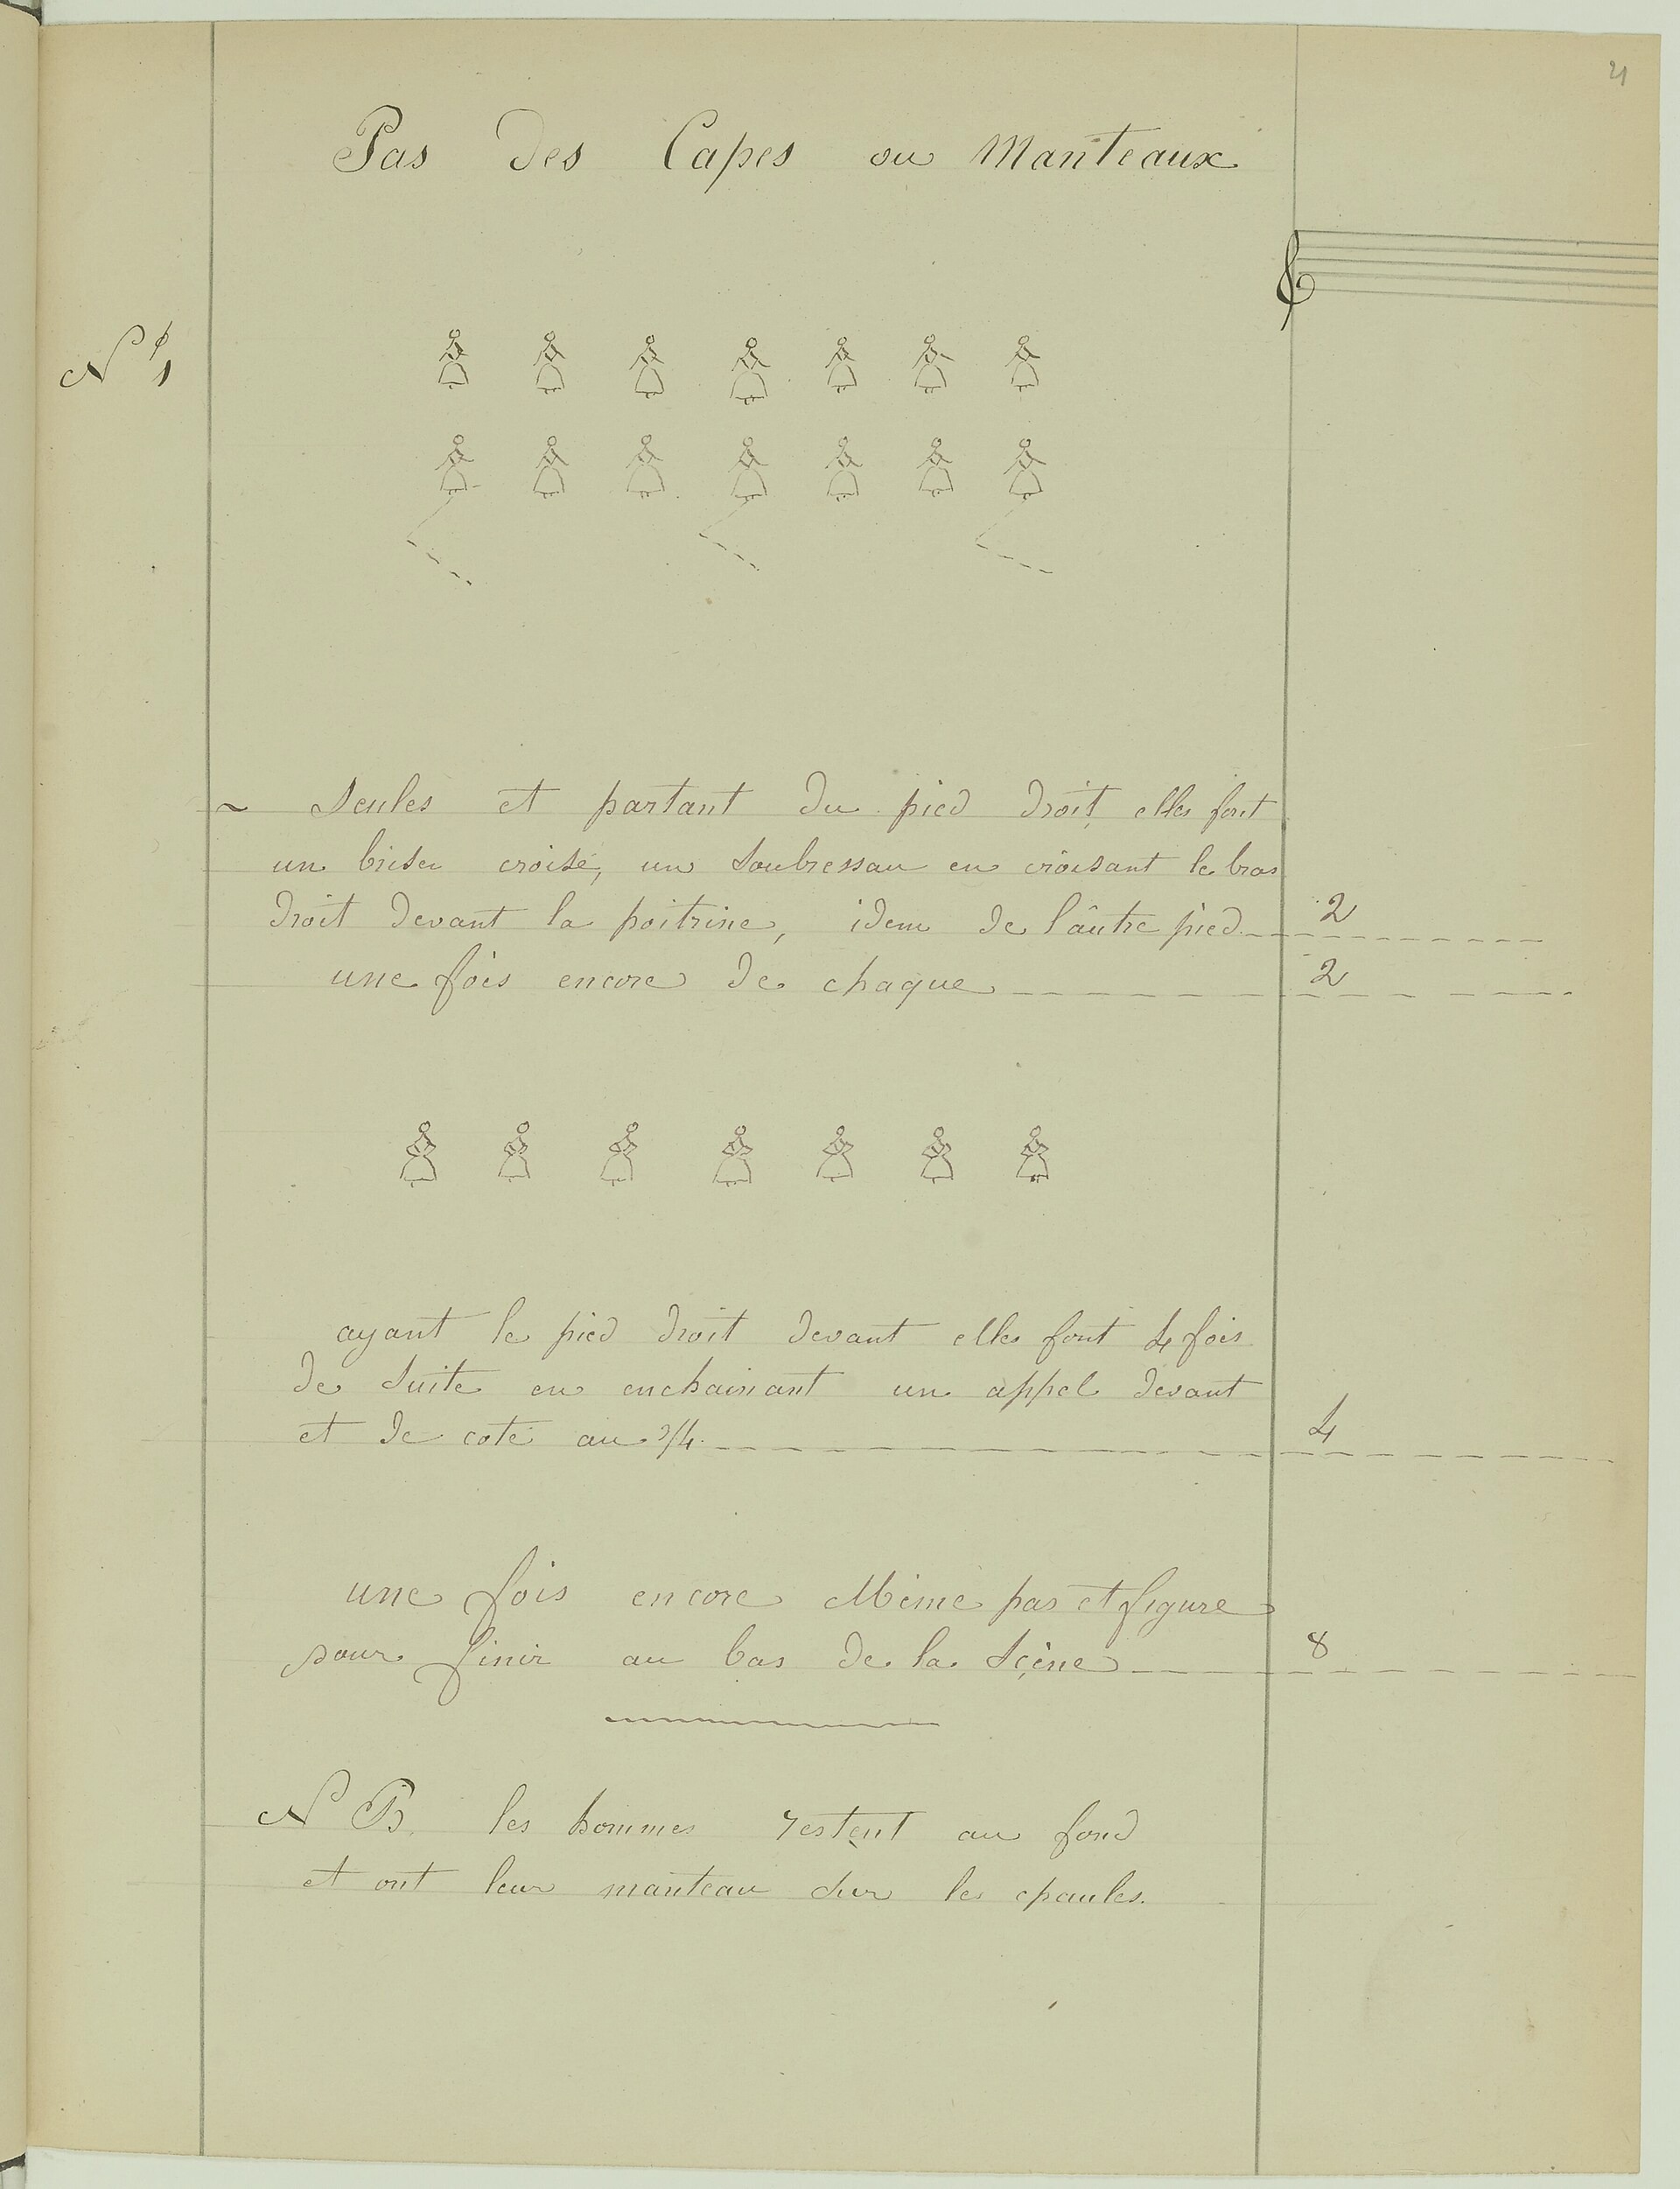 Pas des Capes ou Manteaux
N° 1
~ Seules et partant du pied droit, elles font
un briser croisé, un Soubressau en croisant le bras
droit devant la poitrine, idem de l'âutre pied 2
une fois encore de chaque 2
ayant le pied droit devant elles font 4 fois
de Suite en enchainant un appel devant
et de coté au 3/4 4
une fois encore Même pas et figure
pour finir au bas de la Sçène 8
N B. les hommes restent au fond
et ont leur manteau sur les epaules.